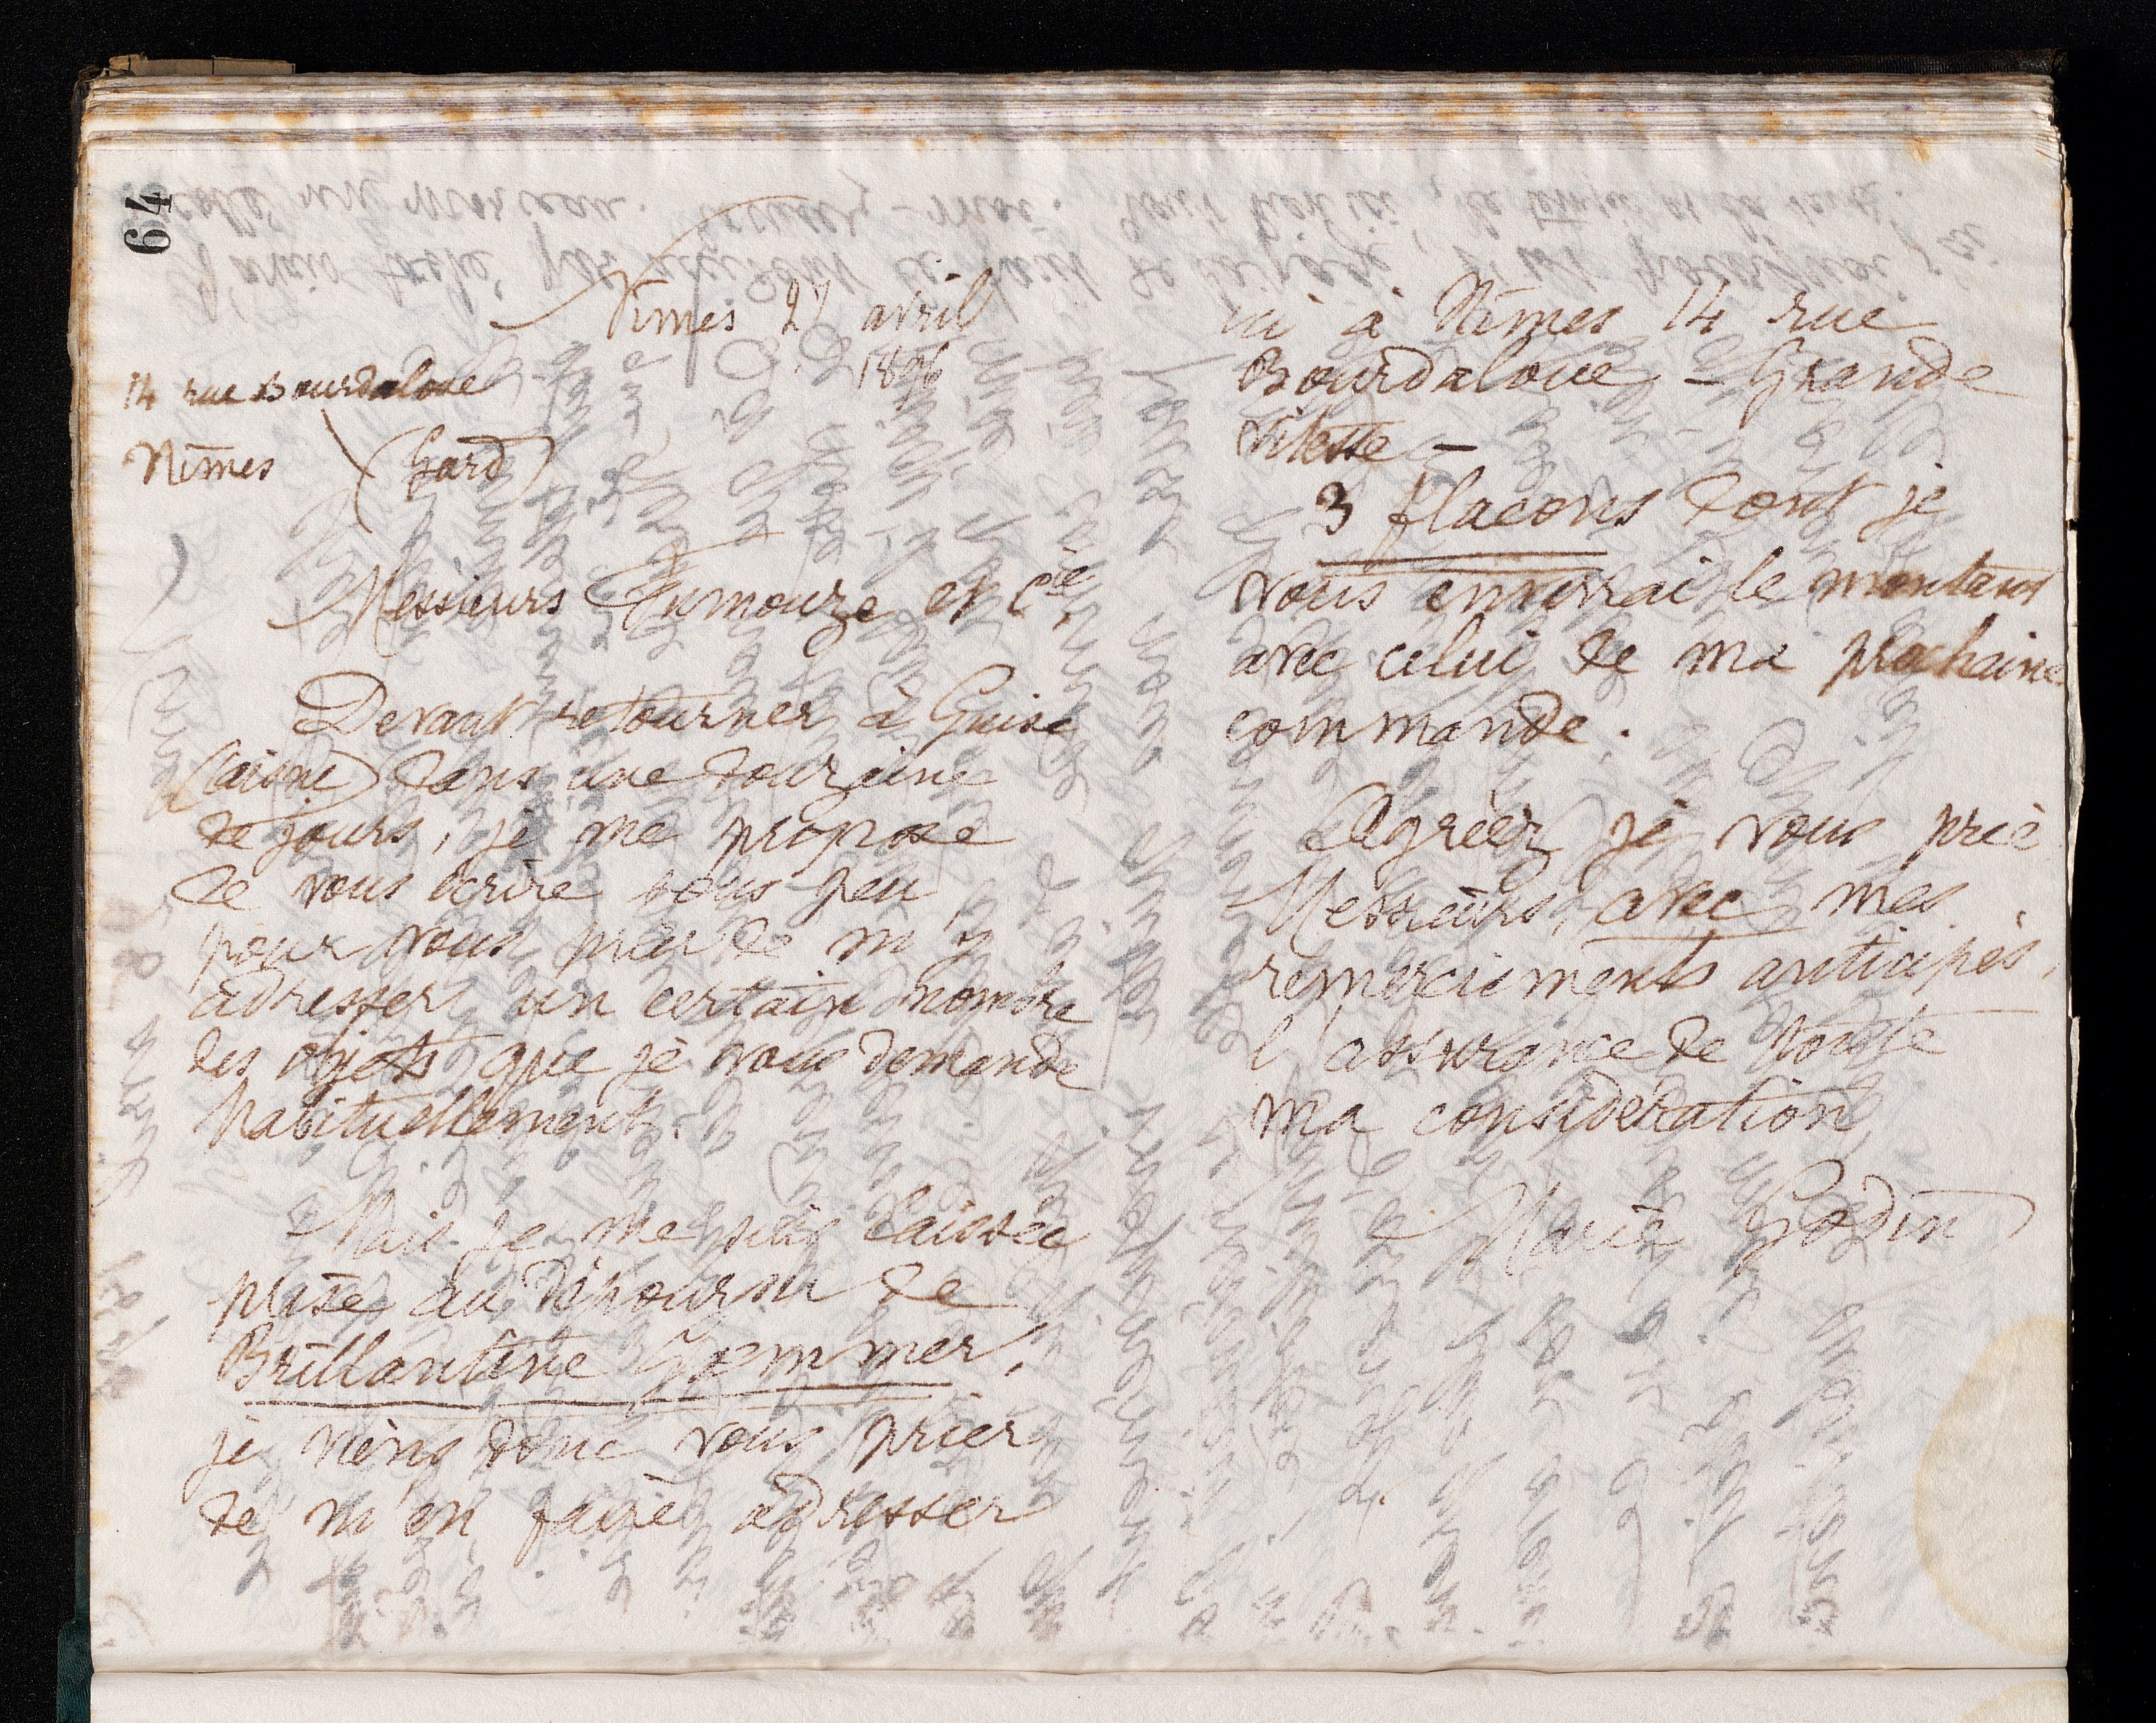 64
Nîmes 27 avril
1896
14 rue Bourdaloue
Nîmes (Gard)
Messieurs Fumouze et Cie.
Devant retourner à Guise
(aisne) dans une douzaine
de jours, je me propose
de vous écrire sous peu
pour vous prier de m'y
adresser un certain nombre
des objets que je vous demande
habituellement.
Mais je me suis laissée
prise au dépourvu de
Brillantine
je viens donc vous prier
de m'en faire adresser
ici à Nîmes 14 rue
Bourdaloue - Grande
Vitesse -
3 flacons dont je
vous enverrai le montant
avec celui de ma prochaine
commande.
Agréez je vous prie
Messieurs, avec mes
remerciements anticipés,
l'assurance de toute
ma considération
Marie Godin